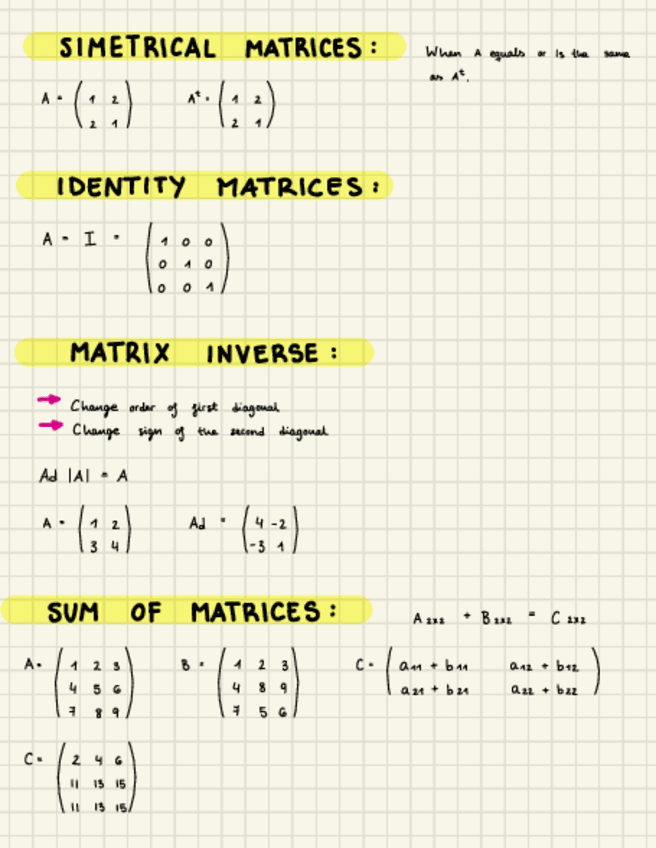 SIMETRICAL MATRICES:
When A equals or is the same
as Aᵗ.
A = ( 1 2      Aᵗ = ( 1 2
2 1 )      2 1 )
IDENTITY MATRICES:
A = I = ( 1 0 0
0 1 0
0 0 1 )
MATRIX INVERSE:
→ Change order of first diagonal
→ Change sign of the second diagonal
Ad |A| = A
A = ( 1 2      Ad = ( 4 -2
3 4 )      -3 1 )
SUM OF MATRICES:
A 2x2 + B 2x2 = C 2x2
A = ( 1 2 3      B = ( 1 2 3      C = ( a11 + b11   a12 + b12
4 5 6      4 8 9      a21 + b21   a22 + b22 )
7 8 9 )      7 5 6 )
C = ( 2 4 6
11 13 15
11 13 15 )